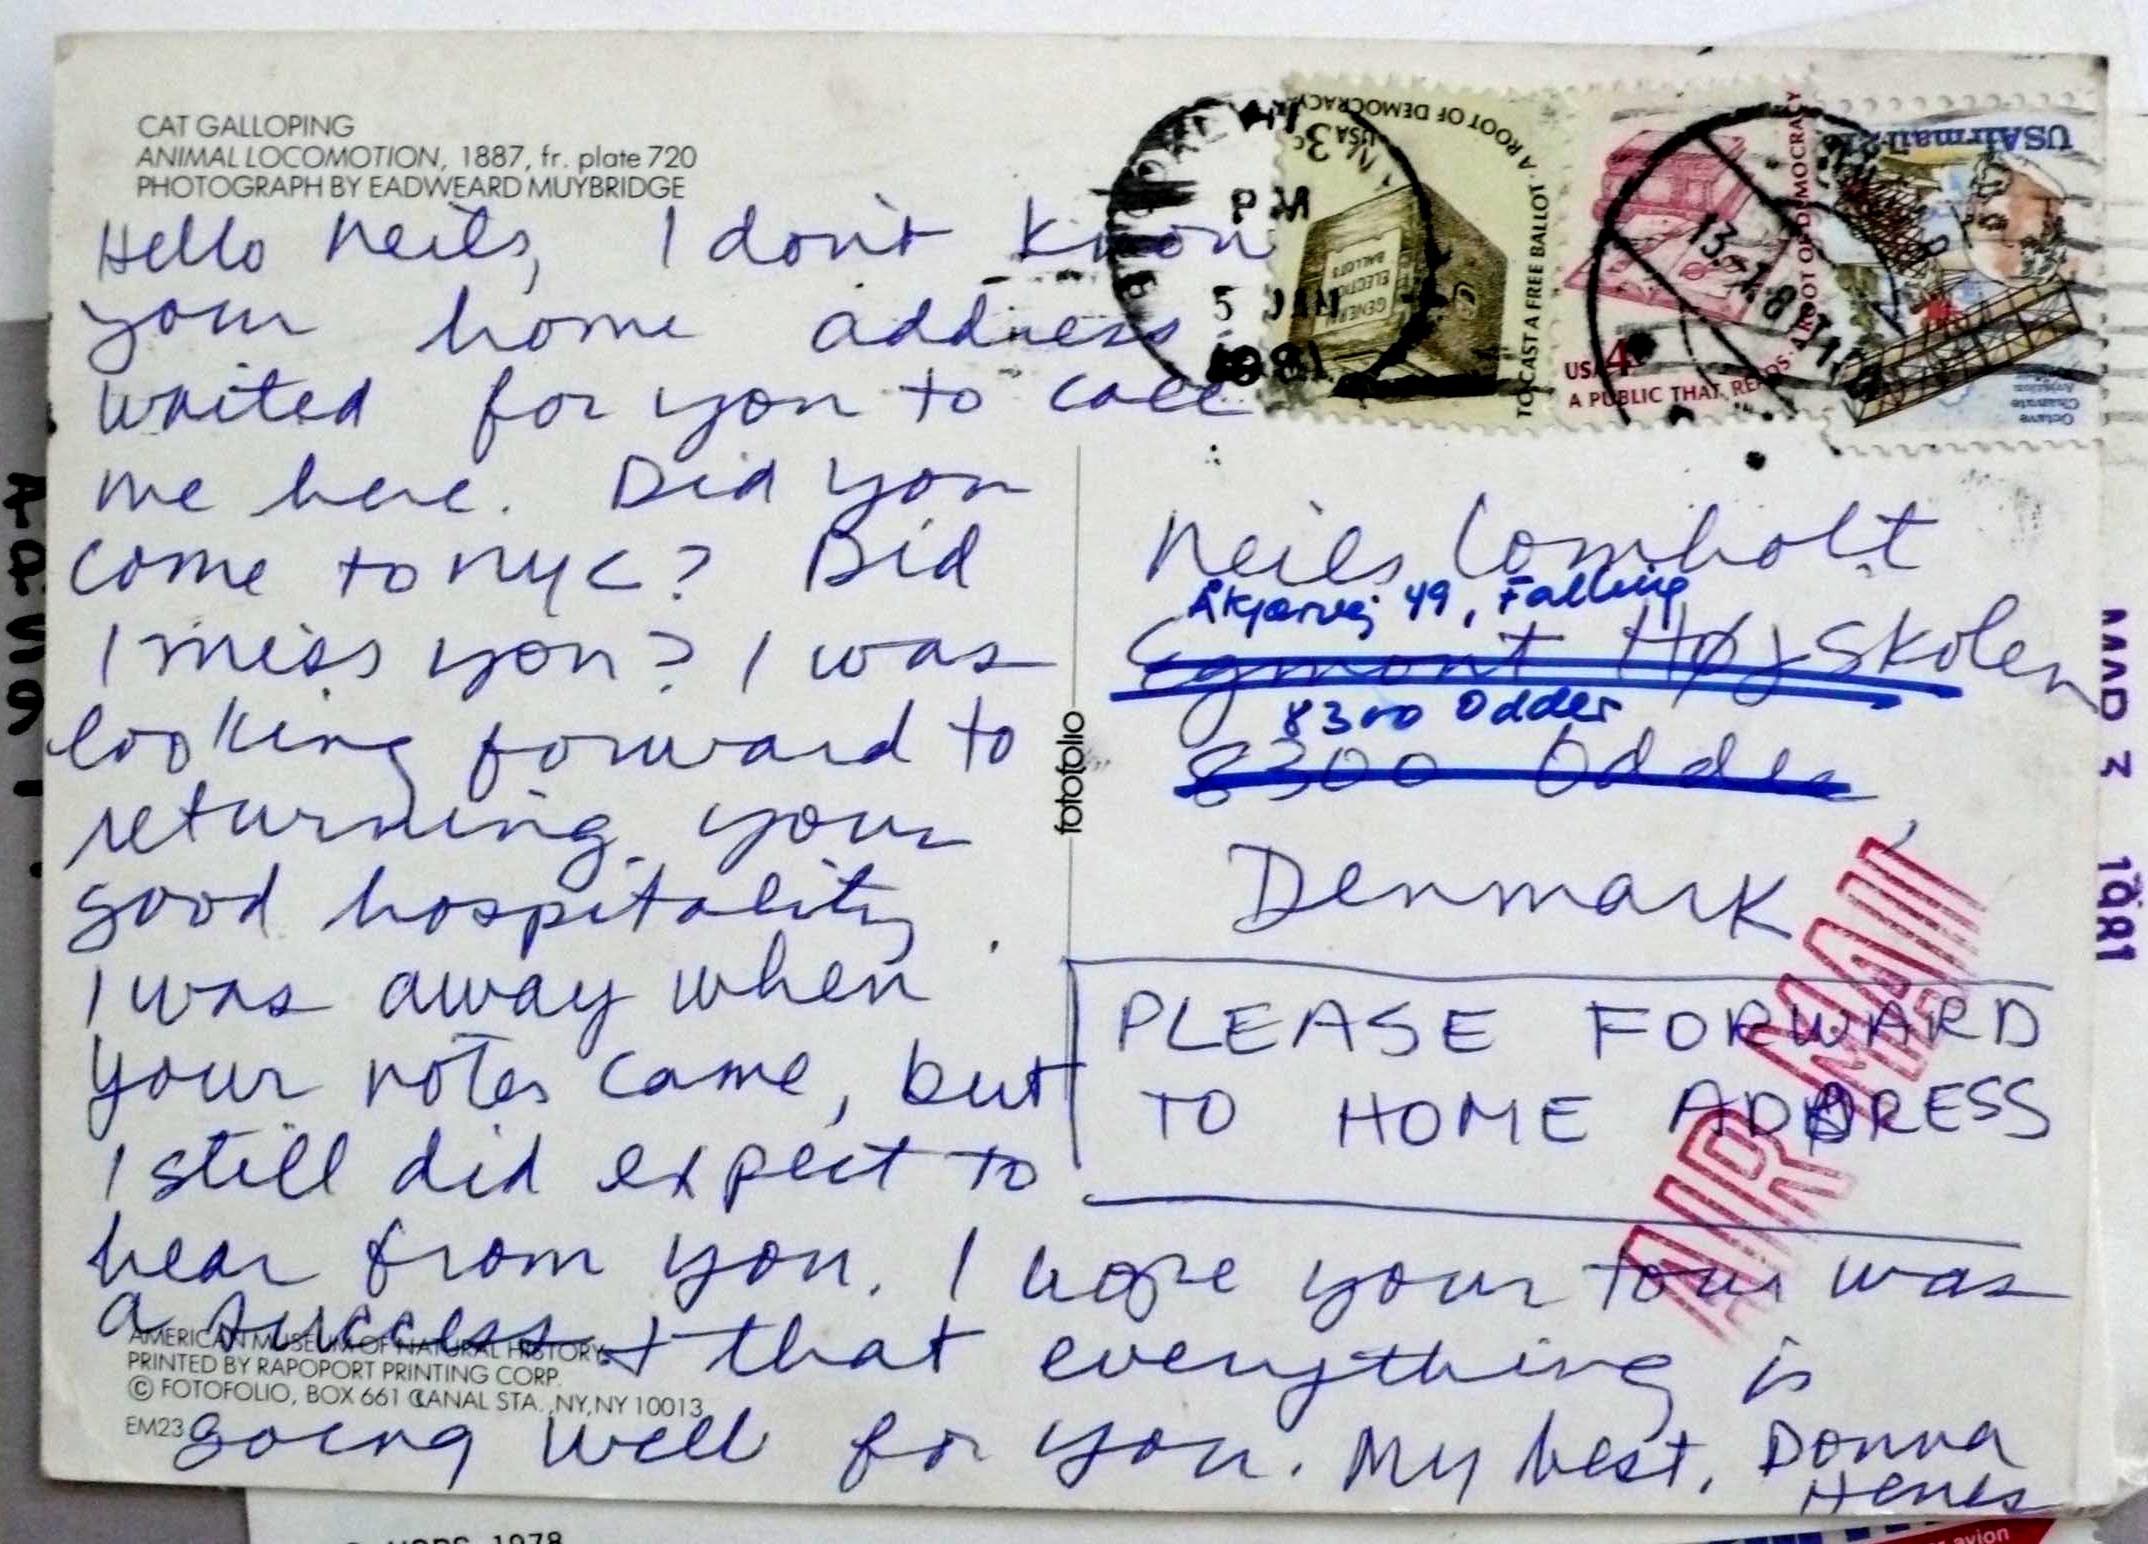 CAT GALLOPING
ANIMAL LOCOMOTION, 1887, fr. plate 720
PHOTOGRAPH BY EADWEARD MUYBRIDGE
Hello Neils, I don't know
your home address
waited for you to call
me here. Did you
come to NYC? Did
I miss you? I was
looking forward to
returning your
good hospitality
I was away when
your notes came, but
I still did expect to
hear from you. I hope your tour was
a success + that everything is
going well for you. My best, Donna
Henes
AMERICAN MUSEUM OF NATURAL HISTORY
PRINTED BY RAPOPORT PRINTING CORP.
© FOTOFOLIO, BOX 661 CANAL STA., NY, NY 10013
EM23
fotofolio
USA 3c
TO CAST A FREE BALLOT · A ROOT OF DEMOCRACY
GENERAL
ELECTION
BALLOTS
PM
5 JAN
1981
USA 4c
A PUBLIC THAT READS · A ROOT OF DEMOCRACY
USAirmail
Octave
Chanute
Neils Lomholt
Åkjærvej 49, Falling
Egmont Højskolen
8300 Odder
8300 Odder
Denmark
PLEASE FORWARD
TO HOME ADDRESS
AIR MAIL
1981
1978
avion